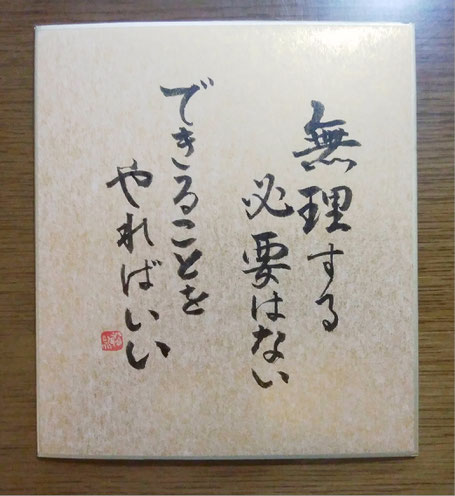 無理する
必要はない
できることを
やればいい